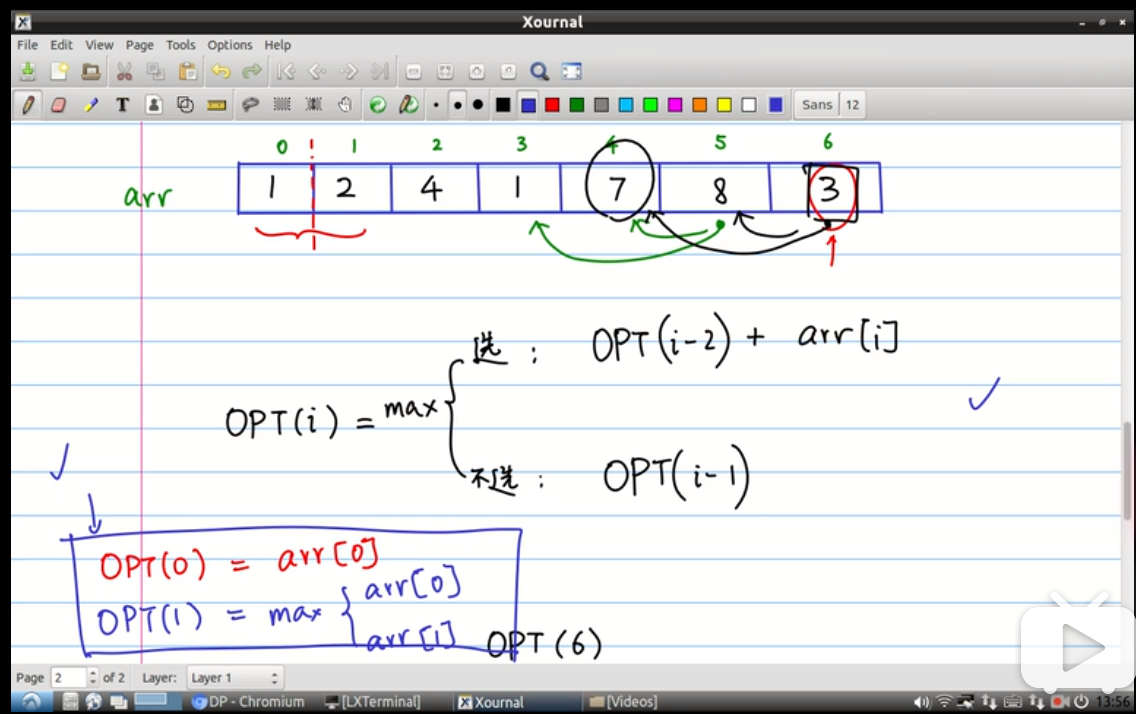 Xournal
File Edit View Page Tools Options Help
T Sans 12
0 1 2 3 4 5 6
arr 1 2 4 1 7 8 3
选: OPT(i-2) + arr[i]
OPT(i) = max
不选: OPT(i-1)
OPT(0) = arr[0]
OPT(1) = max arr[0]
arr[1]
OPT(6)
Page 2 of 2 Layer: Layer 1
DP - Chromium [LXTerminal] Xournal [Videos] 13:56